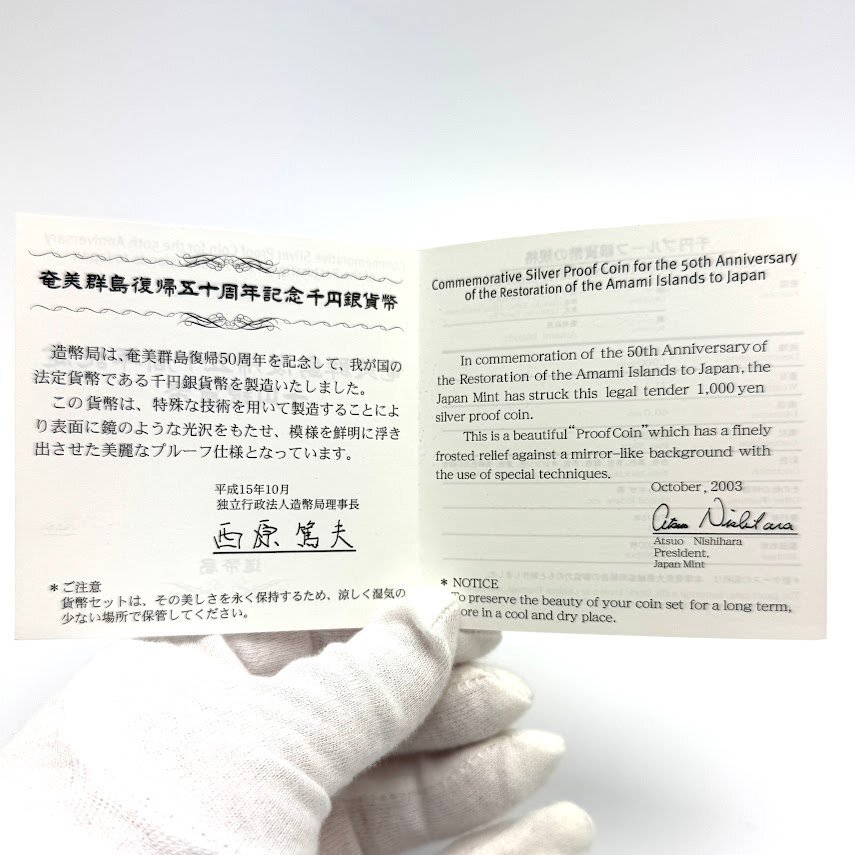 奄美群島復帰五十周年記念千円銀貨幣
造幣局は、奄美群島復帰50周年を記念して、我が国の
法定貨幣である千円銀貨幣を製造いたしました。
この貨幣は、特殊な技術を用いて製造することによ
り表面に鏡のような光沢をもたせ、模様を鮮明に浮き
出させた美麗なプルーフ仕様となっています。
平成15年10月
独立行政法人造幣局理事長
西原篤夫
＊ご注意
貨幣セットは、その美しさを永く保持するため、涼しく湿気の
少ない場所で保管してください。
Commemorative Silver Proof Coin for the 50th Anniversary
of the Restoration of the Amami Islands to Japan
In commemoration of the 50th Anniversary of
the Restoration of the Amami Islands to Japan, the
Japan Mint has struck this legal tender 1,000 yen
silver proof coin.
This is a beautiful "Proof Coin" which has a finely
frosted relief against a mirror-like background with
the use of special techniques.
October, 2003
Atsuo Nishihara
Atsuo Nishihara
President,
Japan Mint
* NOTICE
To preserve the beauty of your coin set for a long term,
ore in a cool and dry place.